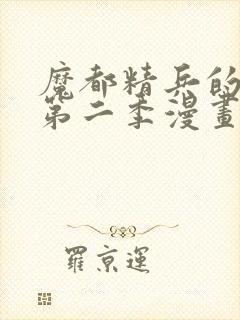 魔都精兵的
第二季漫畫
羅京運